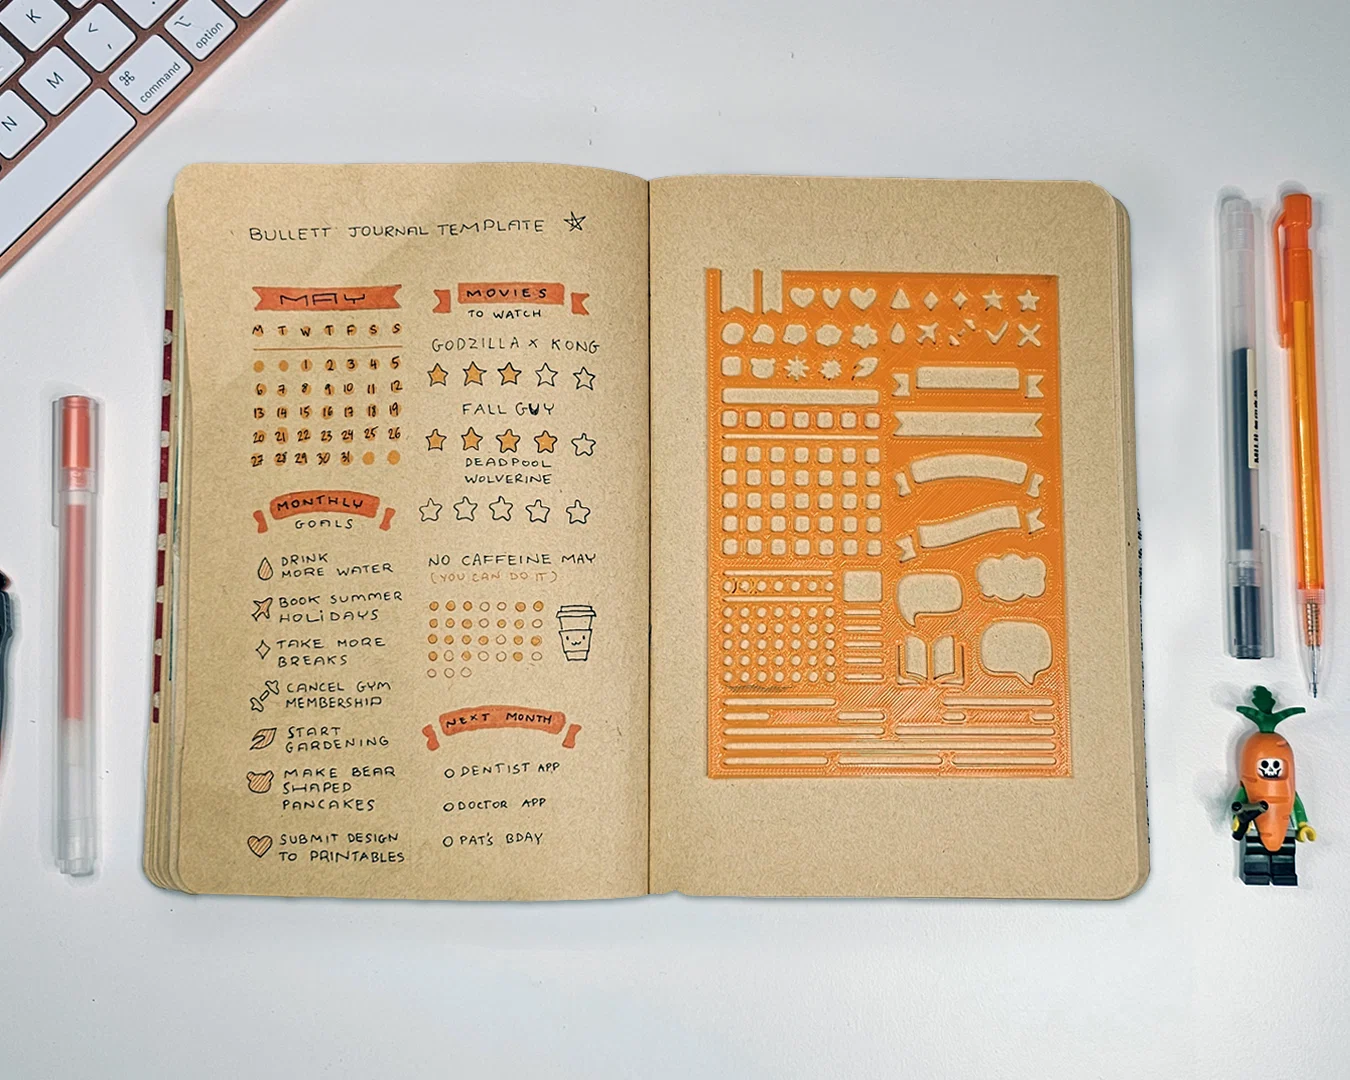 K
<
M
N
⌘
command
⌥
option
BULLETT JOURNAL TEMPLATE
MAY
M T W T F S S
1 2 3 4 5
6 7 8 9 10 11 12
13 14 15 16 17 18 19
20 21 22 23 24 25 26
27 28 29 30 31
MONTHLY
GOALS
DRINK
MORE WATER
BOOK SUMMER
HOLIDAYS
TAKE MORE
BREAKS
CANCEL GYM
MEMBERSHIP
START
GARDENING
MAKE BEAR
SHAPED
PANCAKES
SUBMIT DESIGN
TO PRINTABLES
MOVIES
TO WATCH
GODZILLA X KONG
FALL GUY
DEADPOOL
WOLVERINE
NO CAFFEINE MAY
(YOU CAN DO IT)
NEXT MONTH
DENTIST APP
DOCTOR APP
PAT'S BDAY